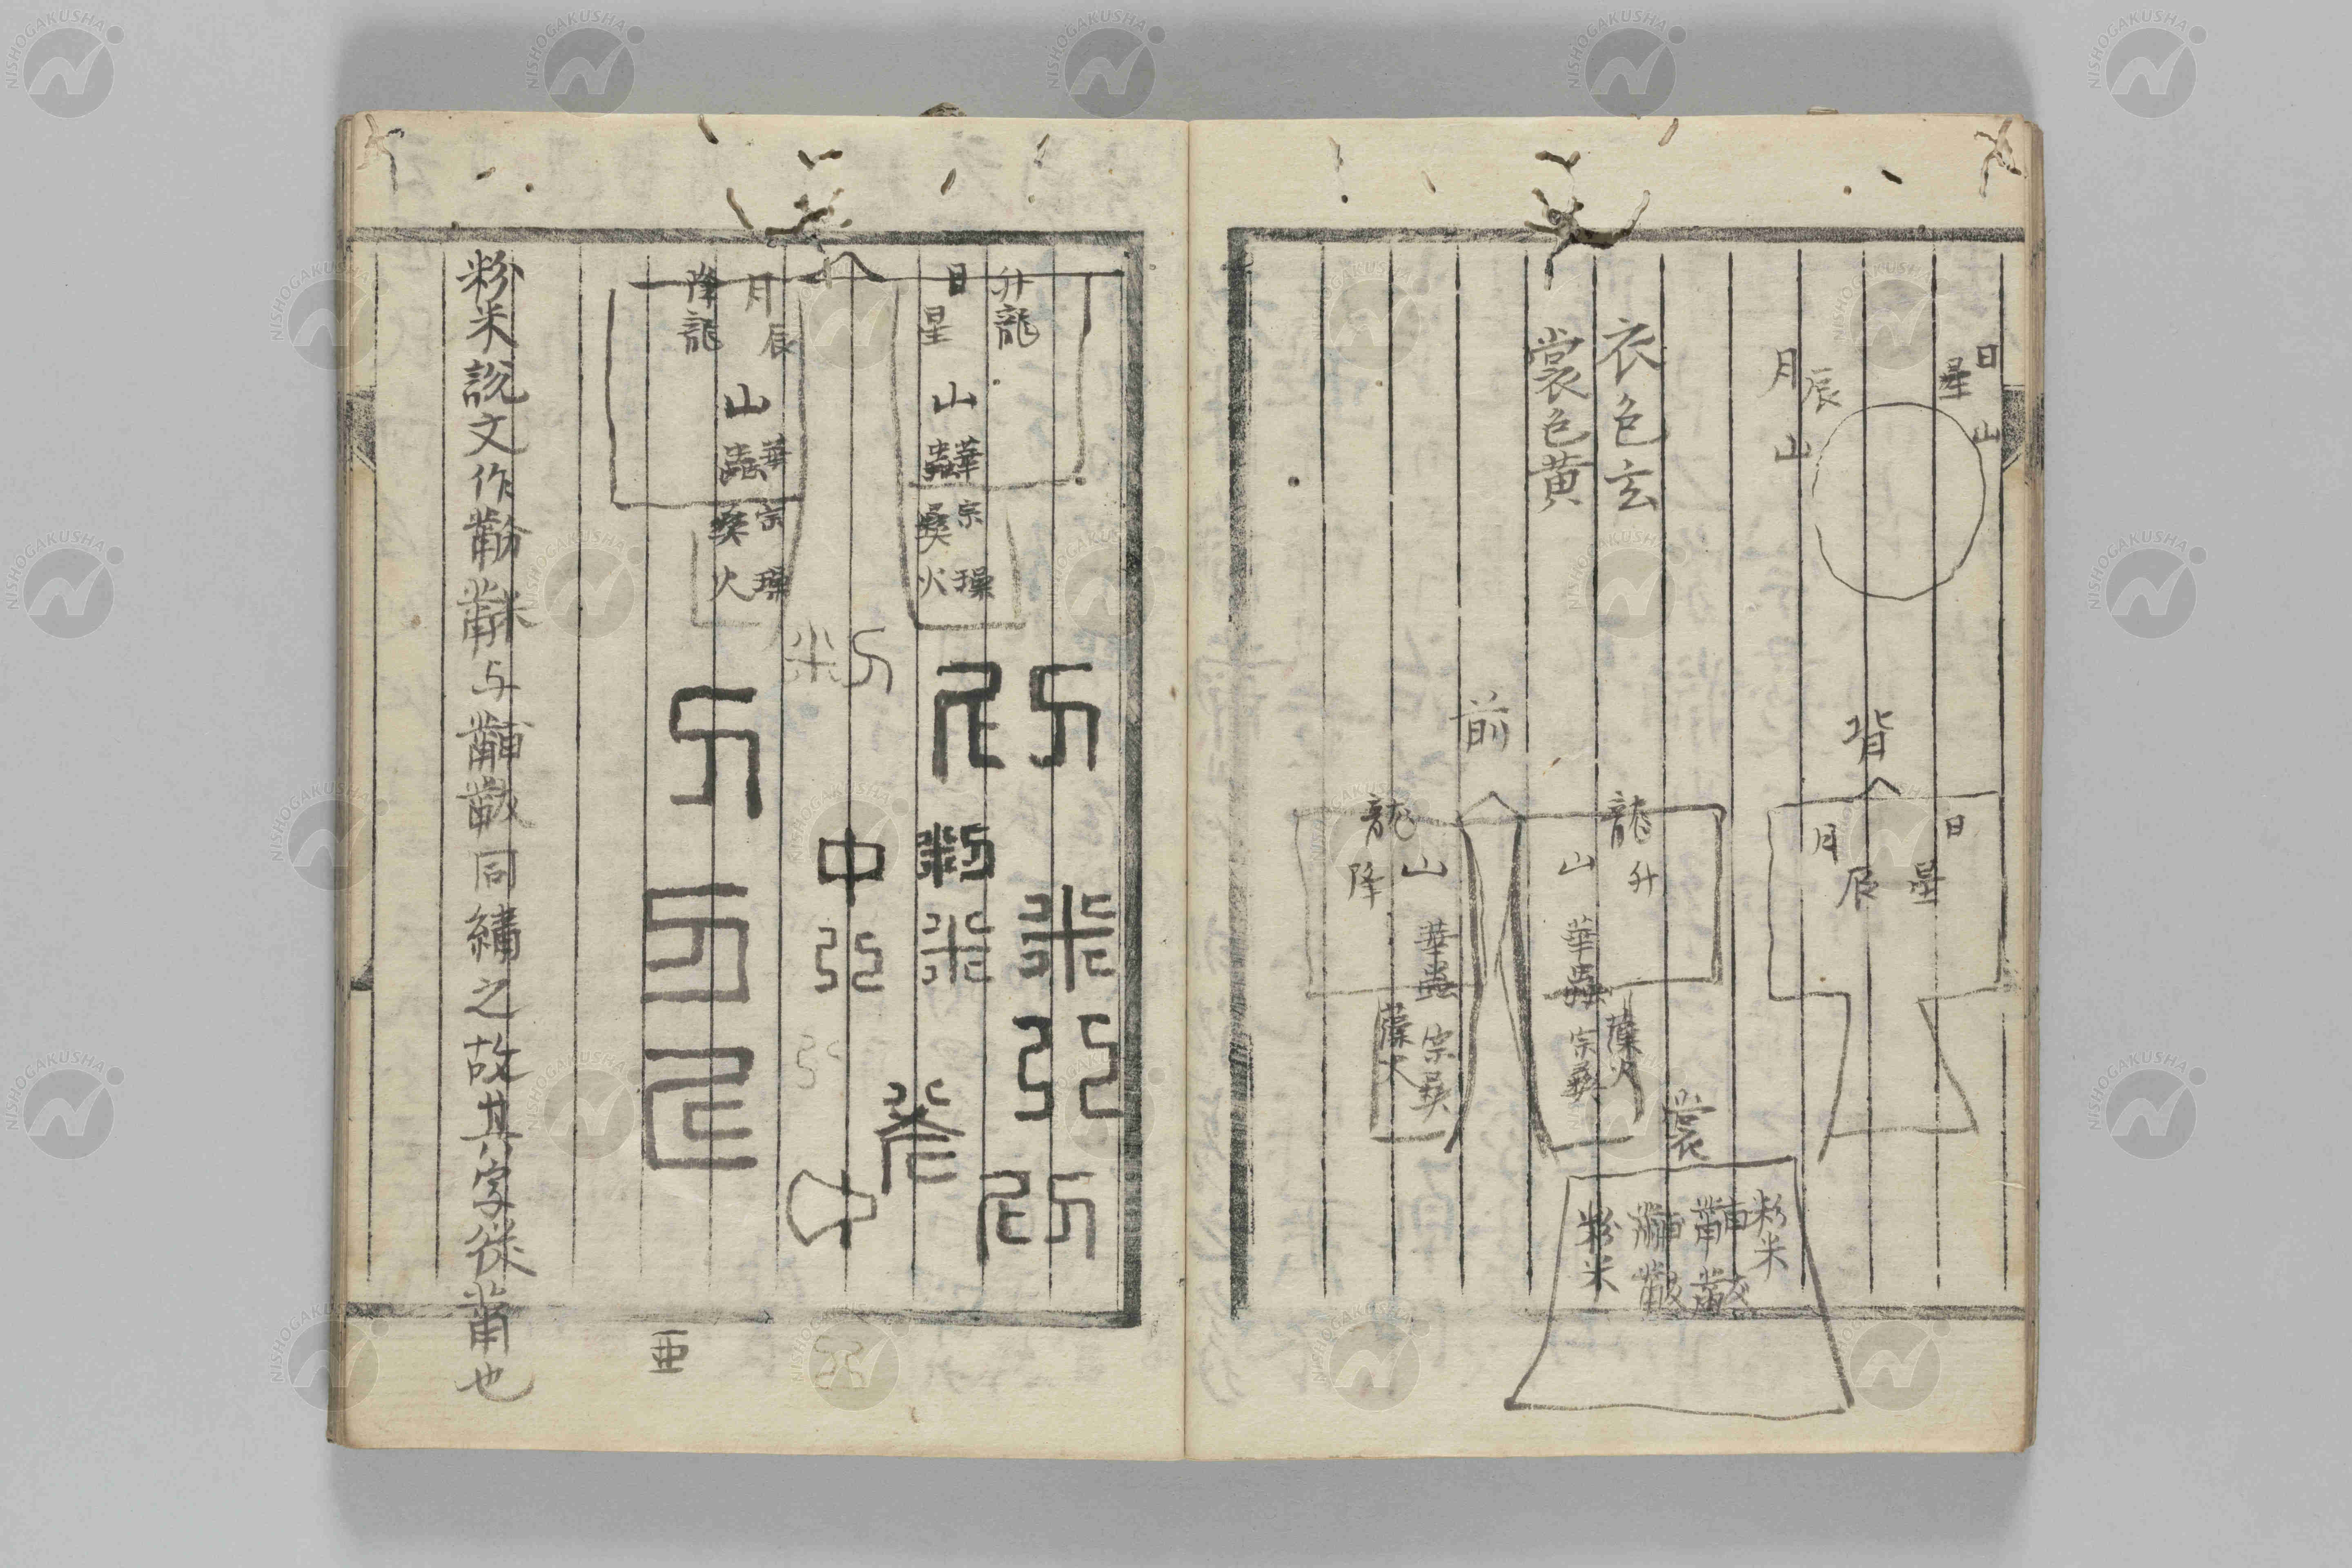 日
星
山
辰
月
山
衣色玄
裳色黄
背
日
星
月
辰
前
龍
升
山
華蟲
宗彝
藻火
龍
降
山
華蟲
宗彝
藻火
裳
粉米
黼
黻
黼
黻
粉米
升龍
日
星
山
華蟲
宗彝
璪火
月
辰
降龍
山
華蟲
宗彝
璪火
亜
粉米説文作黺䋛与黼黻同繡之故其字従黹也
NISHOGAKUSHA